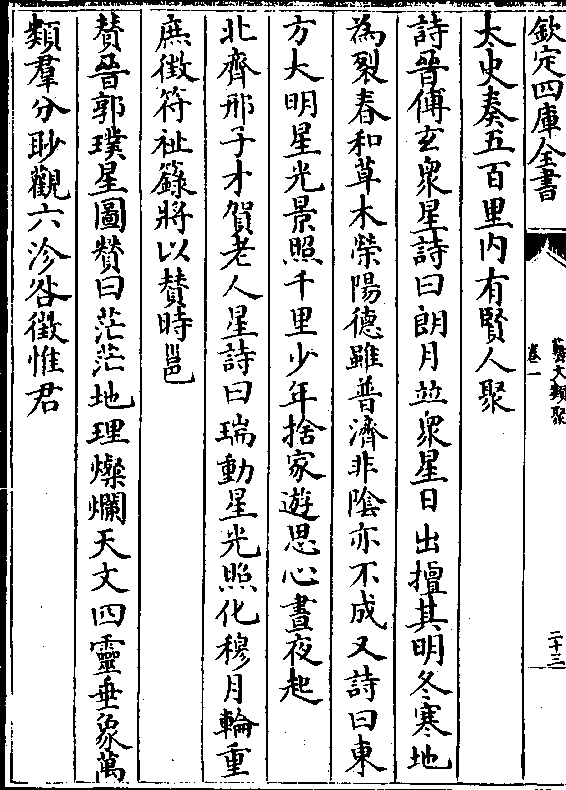 欽定四庫全書
藝文類聚
卷一
二十三
太史奏五百里内有賢人聚
詩晉傅玄衆星詩曰朗月竝衆星日出擅其明冬寒地
為裂春和草木榮陽德雖普濟非陰亦不成又詩曰東
方大明星光景照千里少年捨家遊思心晝夜起
北齊邢子才賀老人星詩曰瑞動星光照化穆月輪重
庶徴符祉籙將以賛時邕
賛晉郭璞星圖賛曰茫茫地理燦爛天文四靈垂象萬
類羣分眇觀六沴咎徴惟君